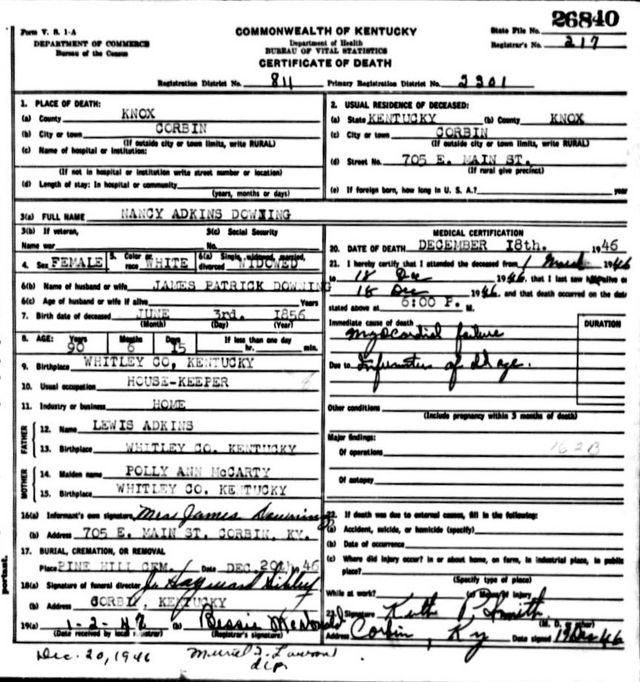 Form V. S. 1-A
DEPARTMENT OF COMMERCE
Bureau of the Census
COMMONWEALTH OF KENTUCKY
Department of Health
BUREAU OF VITAL STATISTICS
CERTIFICATE OF DEATH
26840
State File No.
Registrar's No. 217
Registration District No. 811 Primary Registration District No. 2201
1. PLACE OF DEATH:
(a) County KNOX
(b) City or town CORBIN
(If outside city or town limits, write RURAL)
(c) Name of hospital or institution:
(If not in hospital or institution write street number or location)
(d) Length of stay: In hospital or community
(years, months or days)
2. USUAL RESIDENCE OF DECEASED:
(a) State KENTUCKY (b) County KNOX
(c) City or town CORBIN
(If outside city or town limits, write RURAL)
(d) Street No. 705 E. MAIN ST.
(If rural give precinct)
(e) If foreign born, how long in U. S. A.? years
3(a) FULL NAME NANCY ADKINS DOWNING
3(b) If veteran, 3(c) Social Security
Name war No.
4. Sex FEMALE 5. Color or race WHITE 6(a) Single, widowed, married, divorced WIDOWED
6(b) Name of husband or wife JAMES PATRICK DOWNING
6(c) Age of husband or wife if alive Years
7. Birth date of deceased JUNE 3rd. 1856
(Month) (Day) (Year)
8. AGE: Years Months Days If less than one day
90 6 15 hr. min.
9. Birthplace WHITLEY CO, KENTUCKY
10. Usual occupation HOUSE-KEEPER
11. Industry or business HOME
FATHER
12. Name LEWIS ADKINS
13. Birthplace WHITLEY CO. KENTUCKY
MOTHER
14. Maiden name POLLY ANN McCARTY
15. Birthplace WHITLEY CO. KENTUCKY
16(a) Informant's own signature Mrs James Downing
(b) Address 705 E. MAIN ST. CORBIN, KY.
17. BURIAL, CREMATION, OR REMOVAL
Place PINE HILL CEM. Date DEC. 20th 46
18(a) Signature of funeral director J. Hayward Sibley
(b) Address CORBIN, KENTUCKY
19(a) 1-2-47 (b) Bessie McDonald
(Date received by local registrar) (Registrar's signature)
MEDICAL CERTIFICATION
20. DATE OF DEATH DECEMBER 18th. 1946
21. I hereby certify that I attended the deceased from 1 March 1946
to 18 Dec 1946, that I last saw alive on
18 Dec 1946 and that death occurred on the date
stated above at 6:00 P. M.
DURATION
Immediate cause of death myocardial failure
Due to Infirmities of old age.
Other conditions
(Include pregnancy within 3 months of death)
Major findings:
162B
Of operations
Of autopsy
22. If death was due to external causes, fill in the following:
(a) Accident, suicide, or homicide (specify)
(b) Date of occurrence
(c) Where did injury occur? In or about home, on farm, in industrial place, in public
place?
(Specify type of place)
While at work? (e) Means of injury
23. Signature Keith P Smith
(M. D. or other)
Address Corbin, Ky Date signed 19 Dec 46
Dec. 20, 1946 Muriel
dep.
portant.